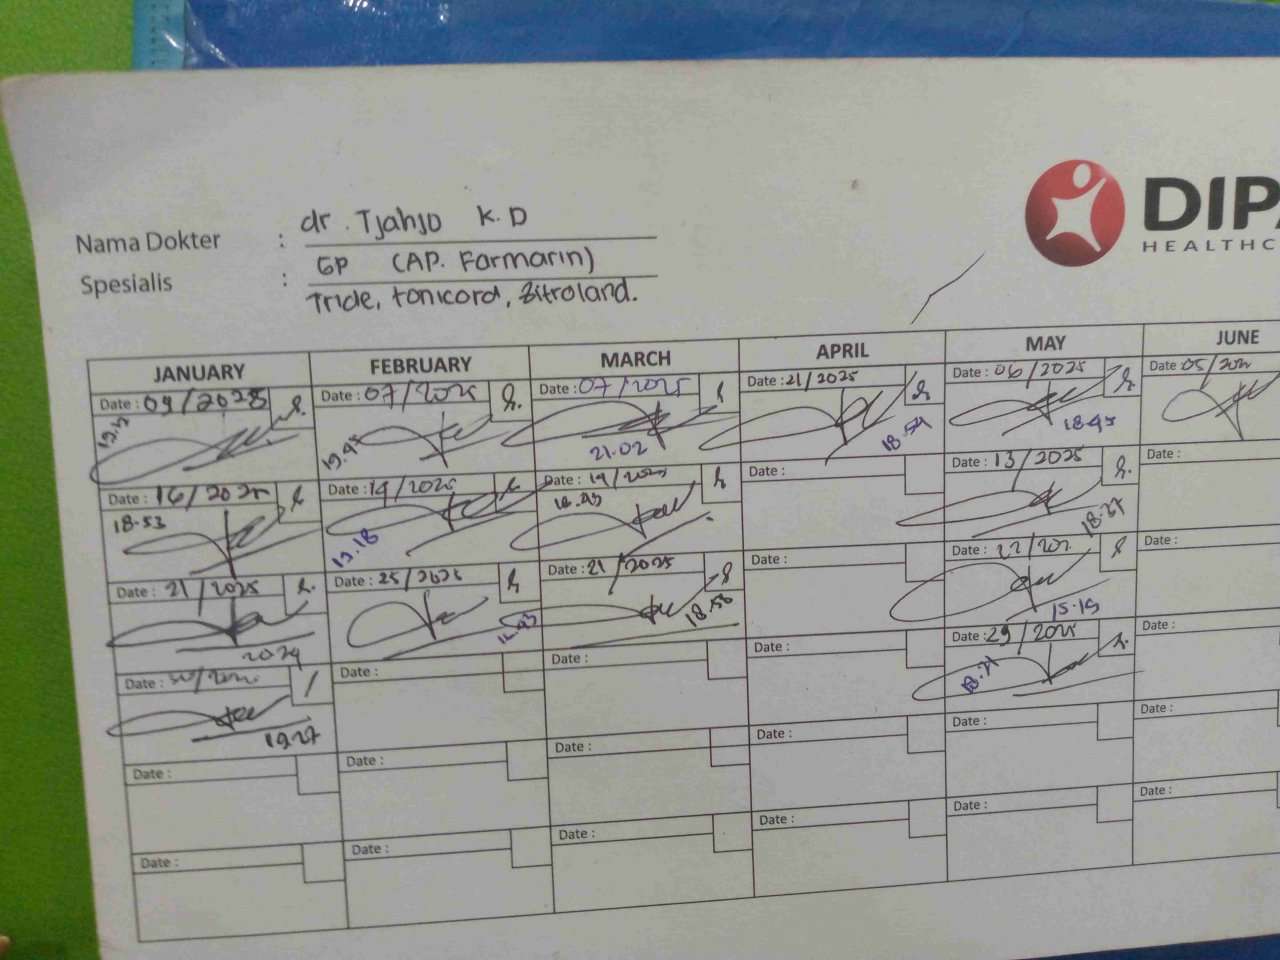 DIPA
HEALTHC
Nama Dokter : dr. Tjahjo K.D
Spesialis : GP (AP. Farmarin)
Tride, tonicord, Zitroland.
JANUARY FEBRUARY MARCH APRIL MAY JUNE
Date : 09/2025 Date : 07/2025 Date : 07/2025 Date : 21/2025 Date : 06/2025 Date : 05/202
19.45 21.02 18.54 18.45
Date : 16/2025 Date : 14/2025 Date : 14/2025 Date : Date : 13/2025 Date :
18.53 19.18 18.43 18.27
Date : 21/2025 Date : 25/2025 Date : 21/2025 Date : Date : 22/202 Date :
2024 18.56 15.19
Date : 30/202 Date : Date : Date : Date : 29/2025 Date :
19.27 18.21
Date : Date : Date : Date : Date : Date :
Date : Date : Date : Date : Date : Date :